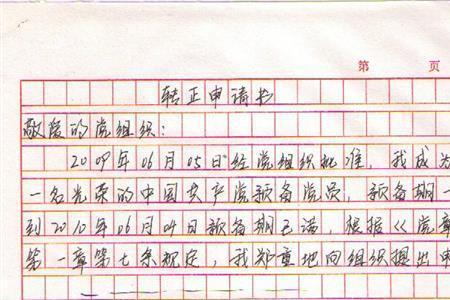 第 页
转正申请书
敬爱的党组织：
2009年06月05日经党组织批准，我成为
一名光荣的中国共产党预备党员，预备期一
到2010年06月04日预备期已满，根据《党章
第一章第七条规定，我郑重地向组织提出申